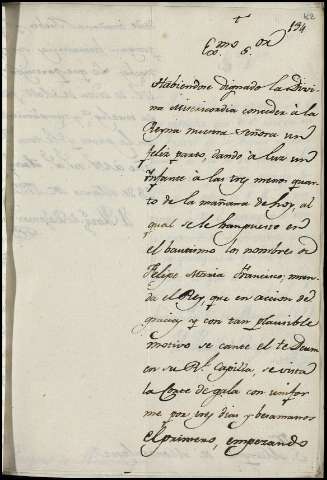 42
†
134
Exmo. Sor.
Habiendose dignado la Divi
na Misericordia conceder à la
Reyna nuestra Señora un
feliz parto, dando à luz un
Ynfante à las tres menos quar
to de la mañana de hoy, al
qual se le han puesto en
el bautismo los nombres de
Felipe Maria Francisco; man
da el Rey, que en accion de
gracias y con tan plausible
motivo se cante el te Deum
en su Rl. Capilla, se vista
la Corte de gala con unifor
me por tres dias y besamanos
el primero, empezando